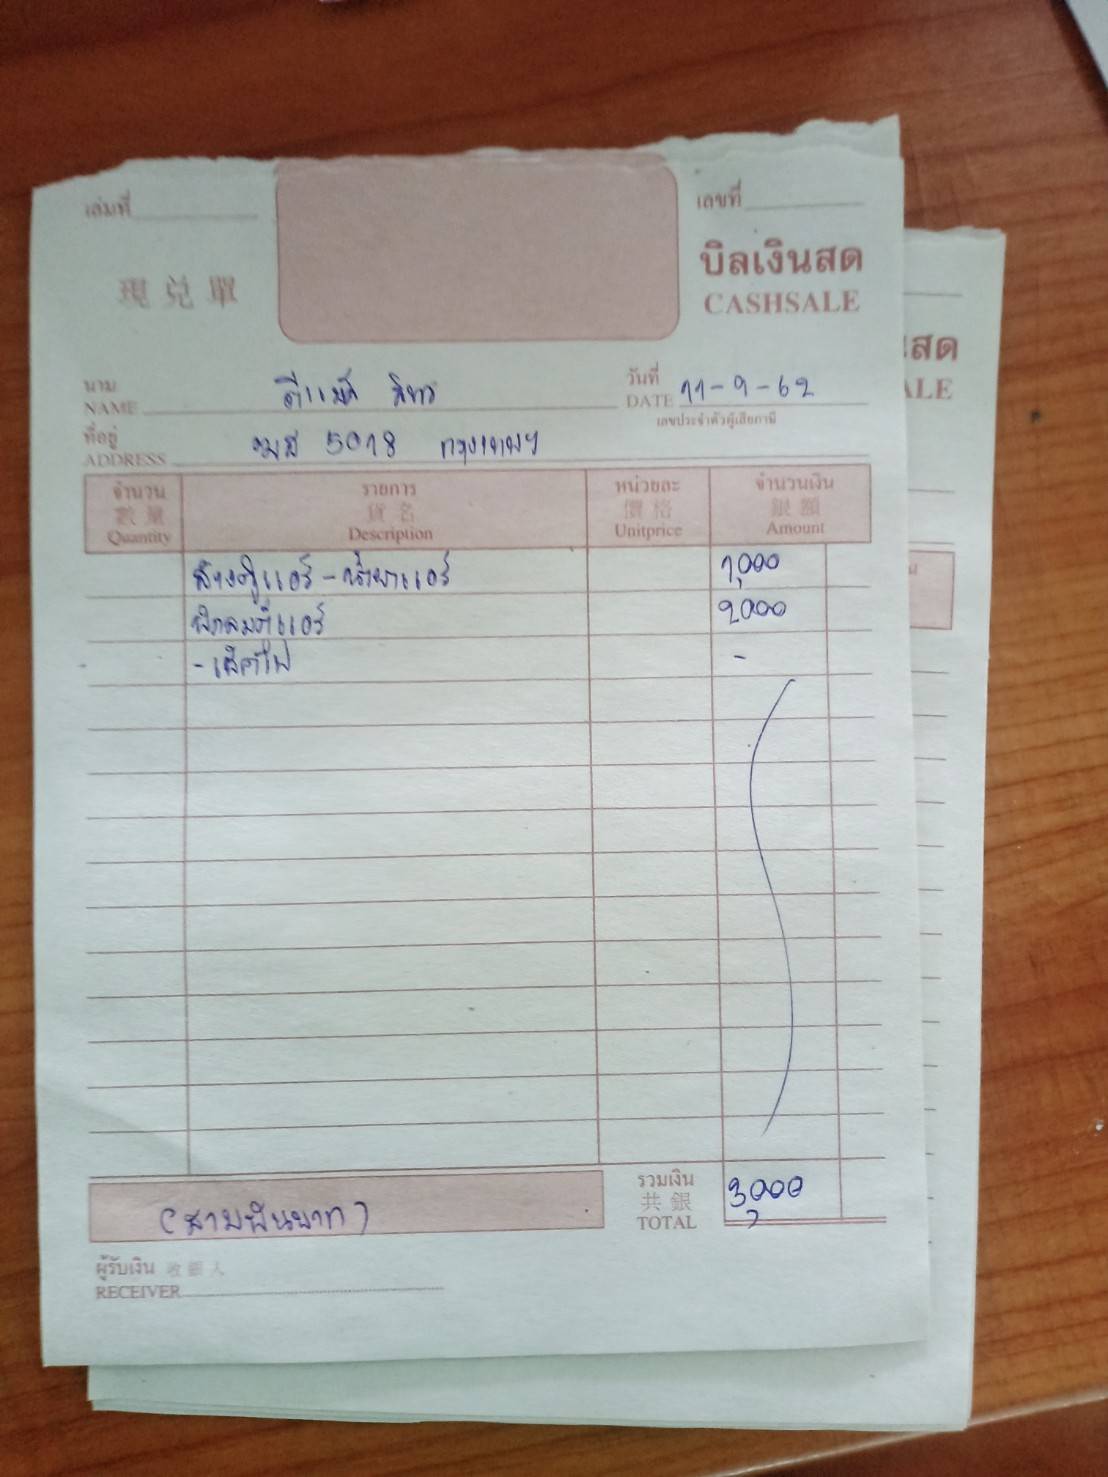 เล่มที่
เลขที่
現 兌 單
บิลเงินสด
CASHSALE
นาม
NAME ดีแม็ค
วันที่
DATE 11-9-62
เลขประจำตัวผู้เสียภาษี
ที่อยู่
ADDRESS 5018 กรุงเทพฯ
จำนวน รายการ หน่วยละ จำนวนเงิน
數 量 貨 名 價 格 銀 額
Quantity Description Unitprice Amount
ล้างตู้แอร์ - น้ำยาแอร์ 1,000
แอร์ 2000
- เช็คไฟ -
รวมเงิน
共 銀
TOTAL 3,000
(สามพันบาท)
ผู้รับเงิน 收 銀 人
RECEIVER
นสด
ALE